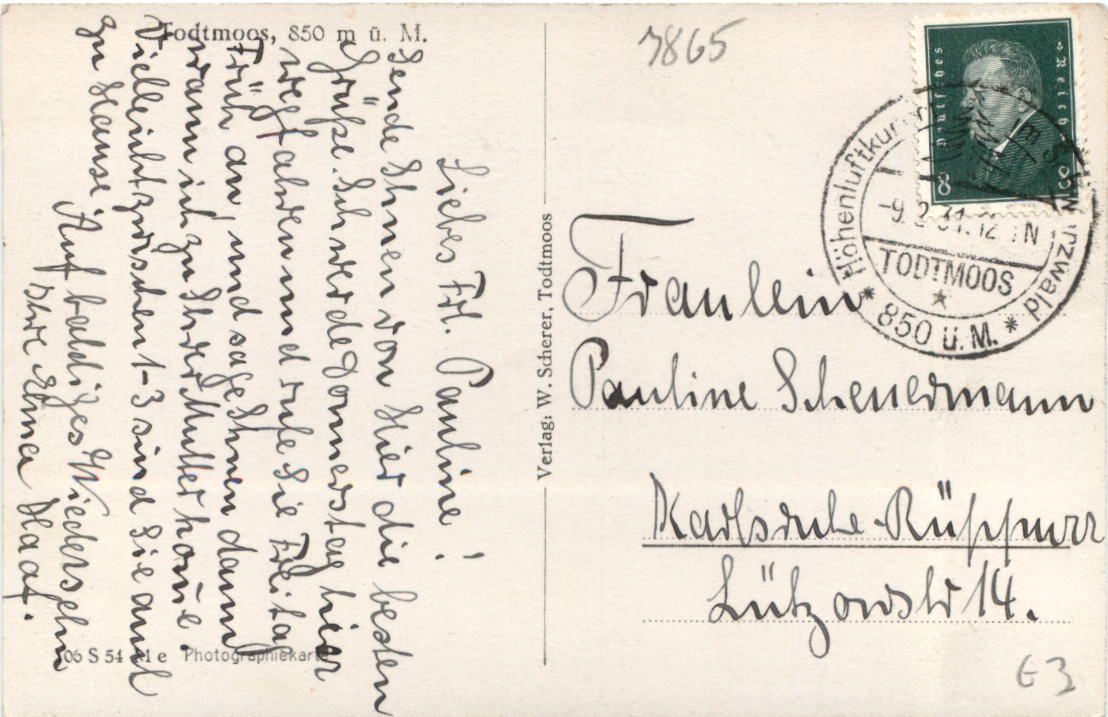 Todtmoos, 850 m ü. M.
Liebes Frl. Pauline!
Sende Ihnen von hier die besten
Grüße. Ich werde Donnerstag hier
wegfahren und rufe Sie Freitag
früh an, und sage Ihnen dann
wann ich zu Ihrer Mutter komme.
Vielleicht zwischen 1-3 sind Sie auch
zu Hause. Auf baldiges Wiedersehn
Ihre Haaf.
06 S 54 e Photographiekarte
Verlag: W. Scherer, Todtmoos
7865
Deutsches Reich
8
Höhenluftkurort im Schwarzwald
-9. 31. 12 N
TODTMOOS
* 850 ü. M. *
Fräulein
Pauline Scheuermann
Karlsruhe-Rüppurr
Lützowstr 14.
G3